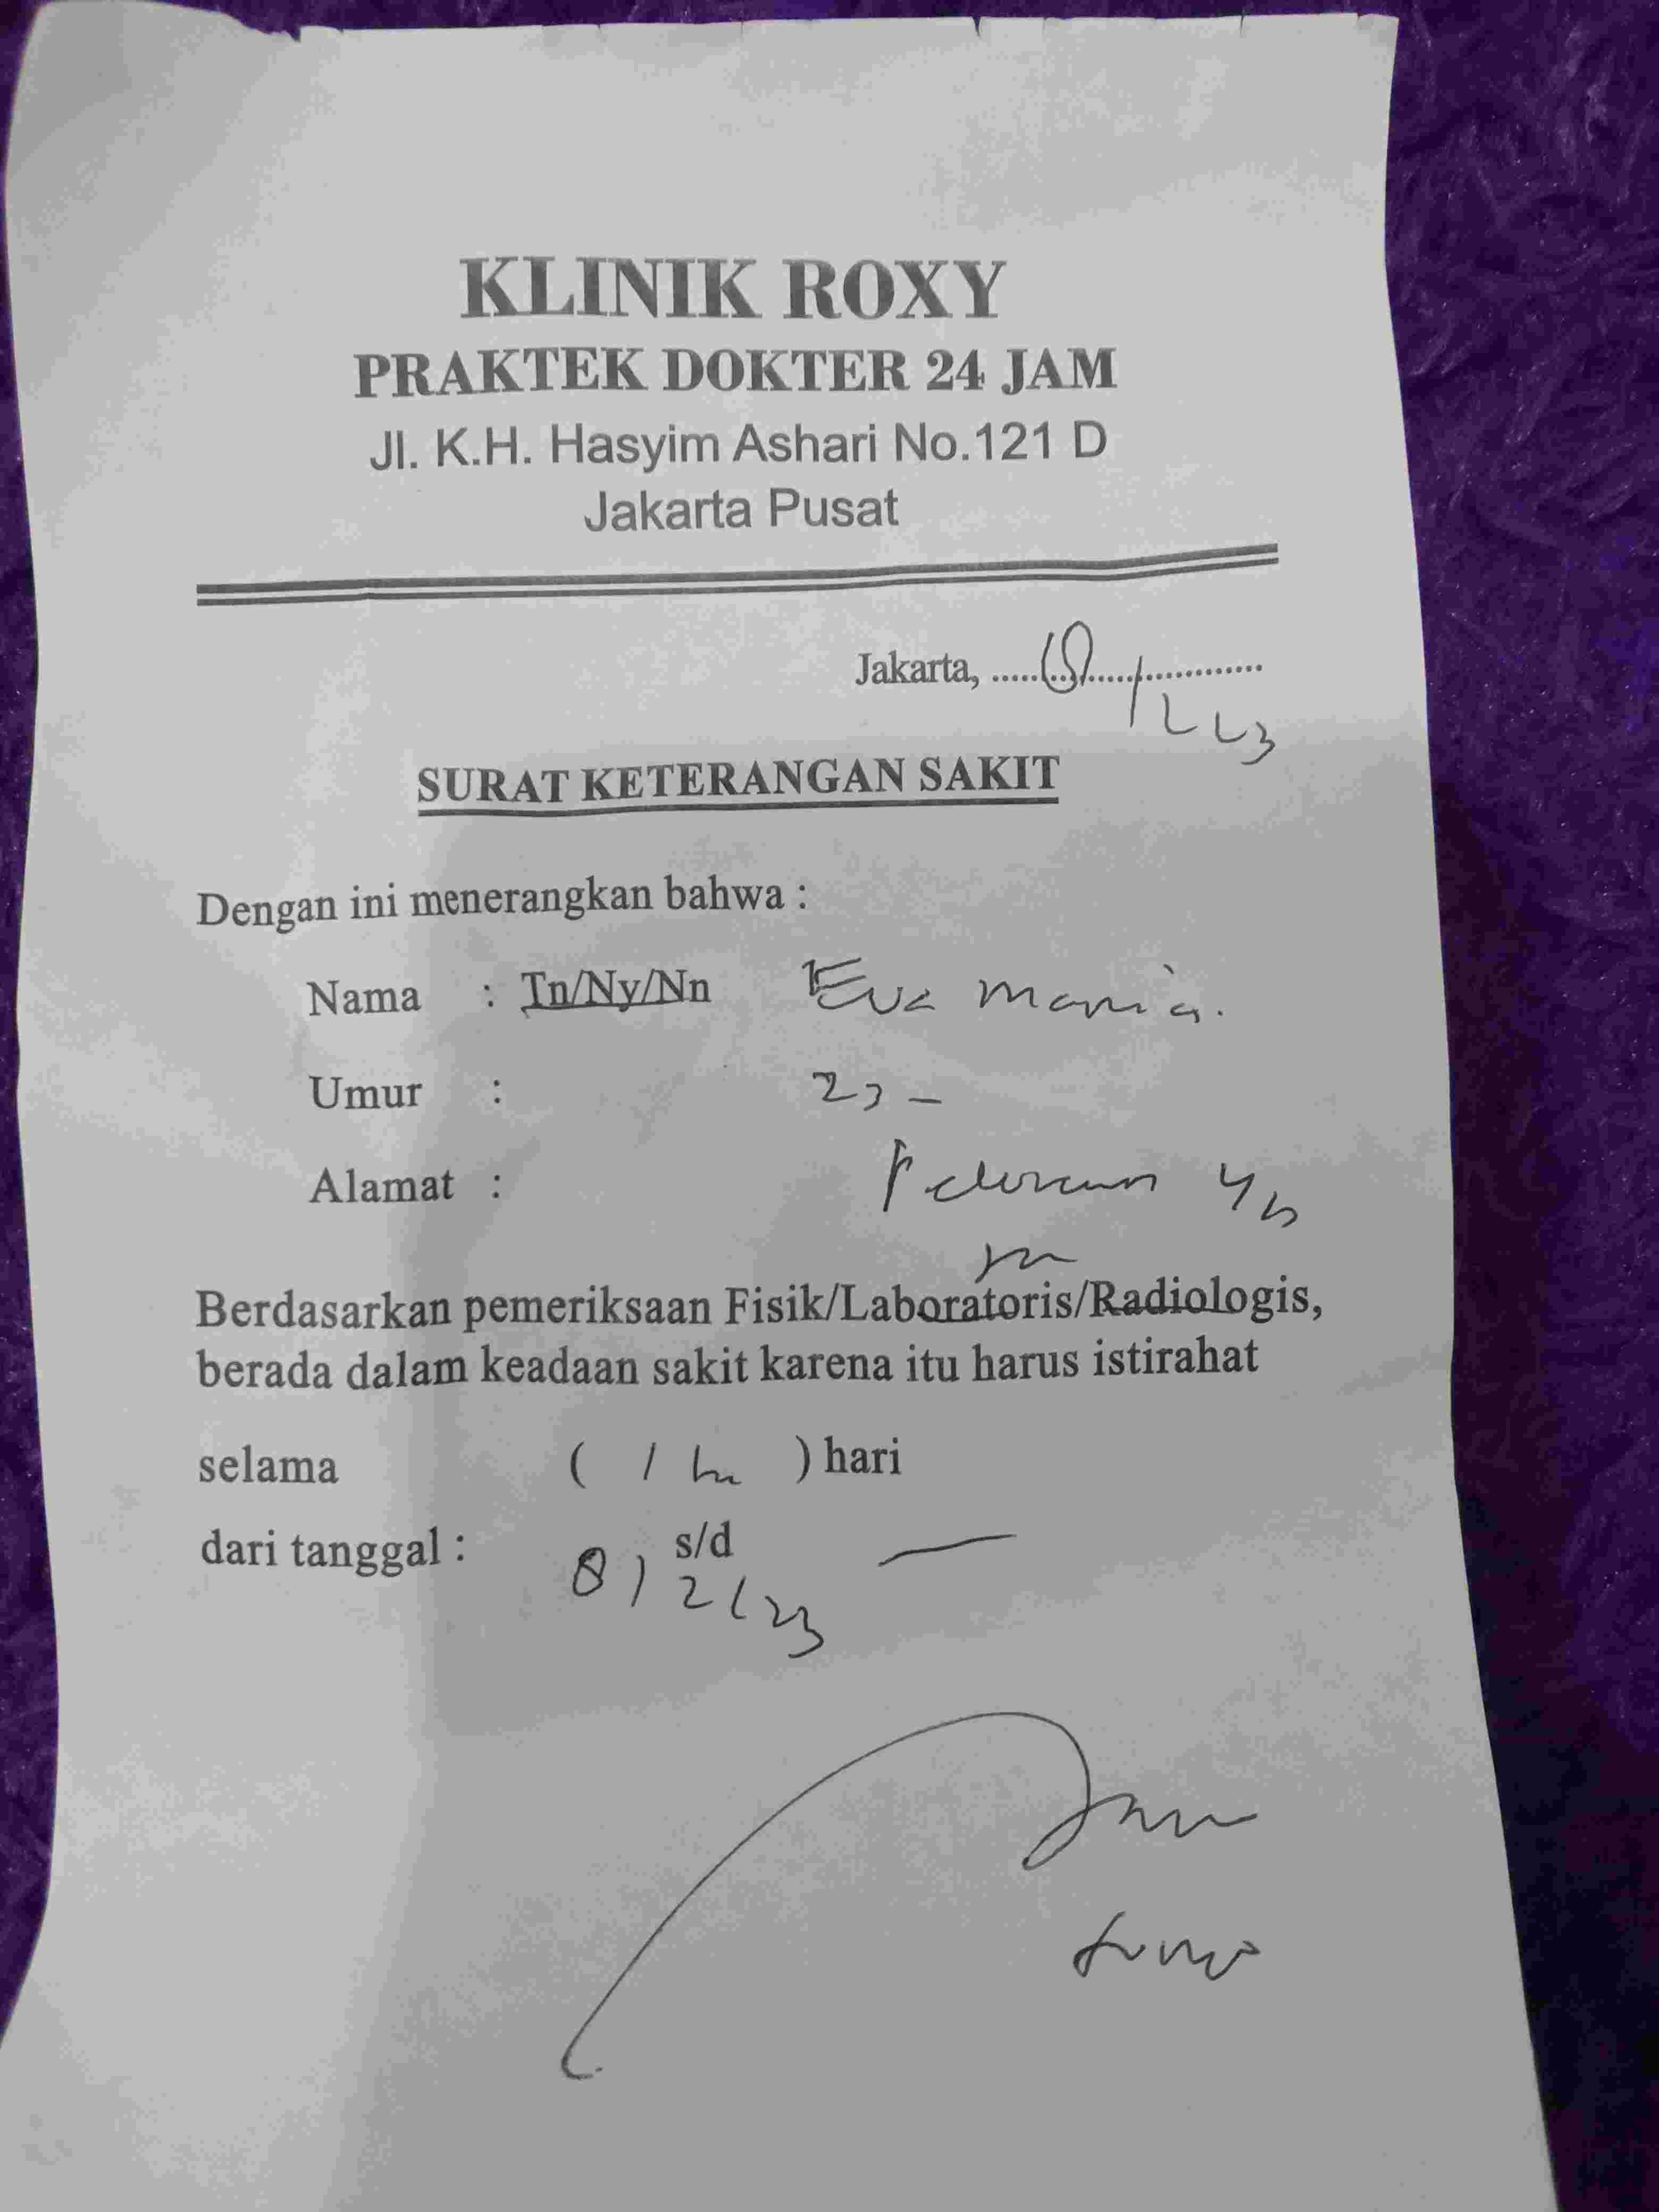 KLINIK ROXY
PRAKTEK DOKTER 24 JAM
Jl. K.H. Hasyim Ashari No.121 D
Jakarta Pusat
Jakarta, ..... 8/2 23
SURAT KETERANGAN SAKIT
Dengan ini menerangkan bahwa :
Nama : Tn/Ny/Nn Eva Maria.
Umur : 23 -
Alamat :
Berdasarkan pemeriksaan Fisik/Laboratoris/Radiologis,
berada dalam keadaan sakit karena itu harus istirahat
selama ( 1 ) hari
dari tanggal : 8/2/23 s/d —